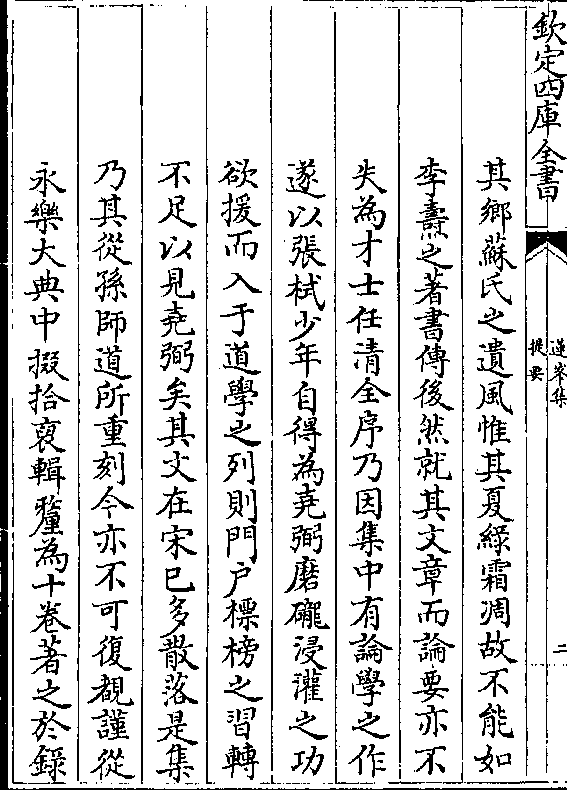 欽定四庫全書
蓮峯集
提要
二
其鄉蘇氏之遺風惟其夏綠霜凋故不能如
李燾之著書傳後然就其文章而論要亦不
失為才士任清全序乃因集中有論學之作
遂以張栻少年自得為堯弼磨礲浸灌之功
欲援而入于道學之列則門户標榜之習轉
不足以見堯弼矣其文在宋已多散落是集
乃其從孫師道所重刻今亦不可復覩謹從
永樂大典中掇拾裒輯釐為十卷著之於錄